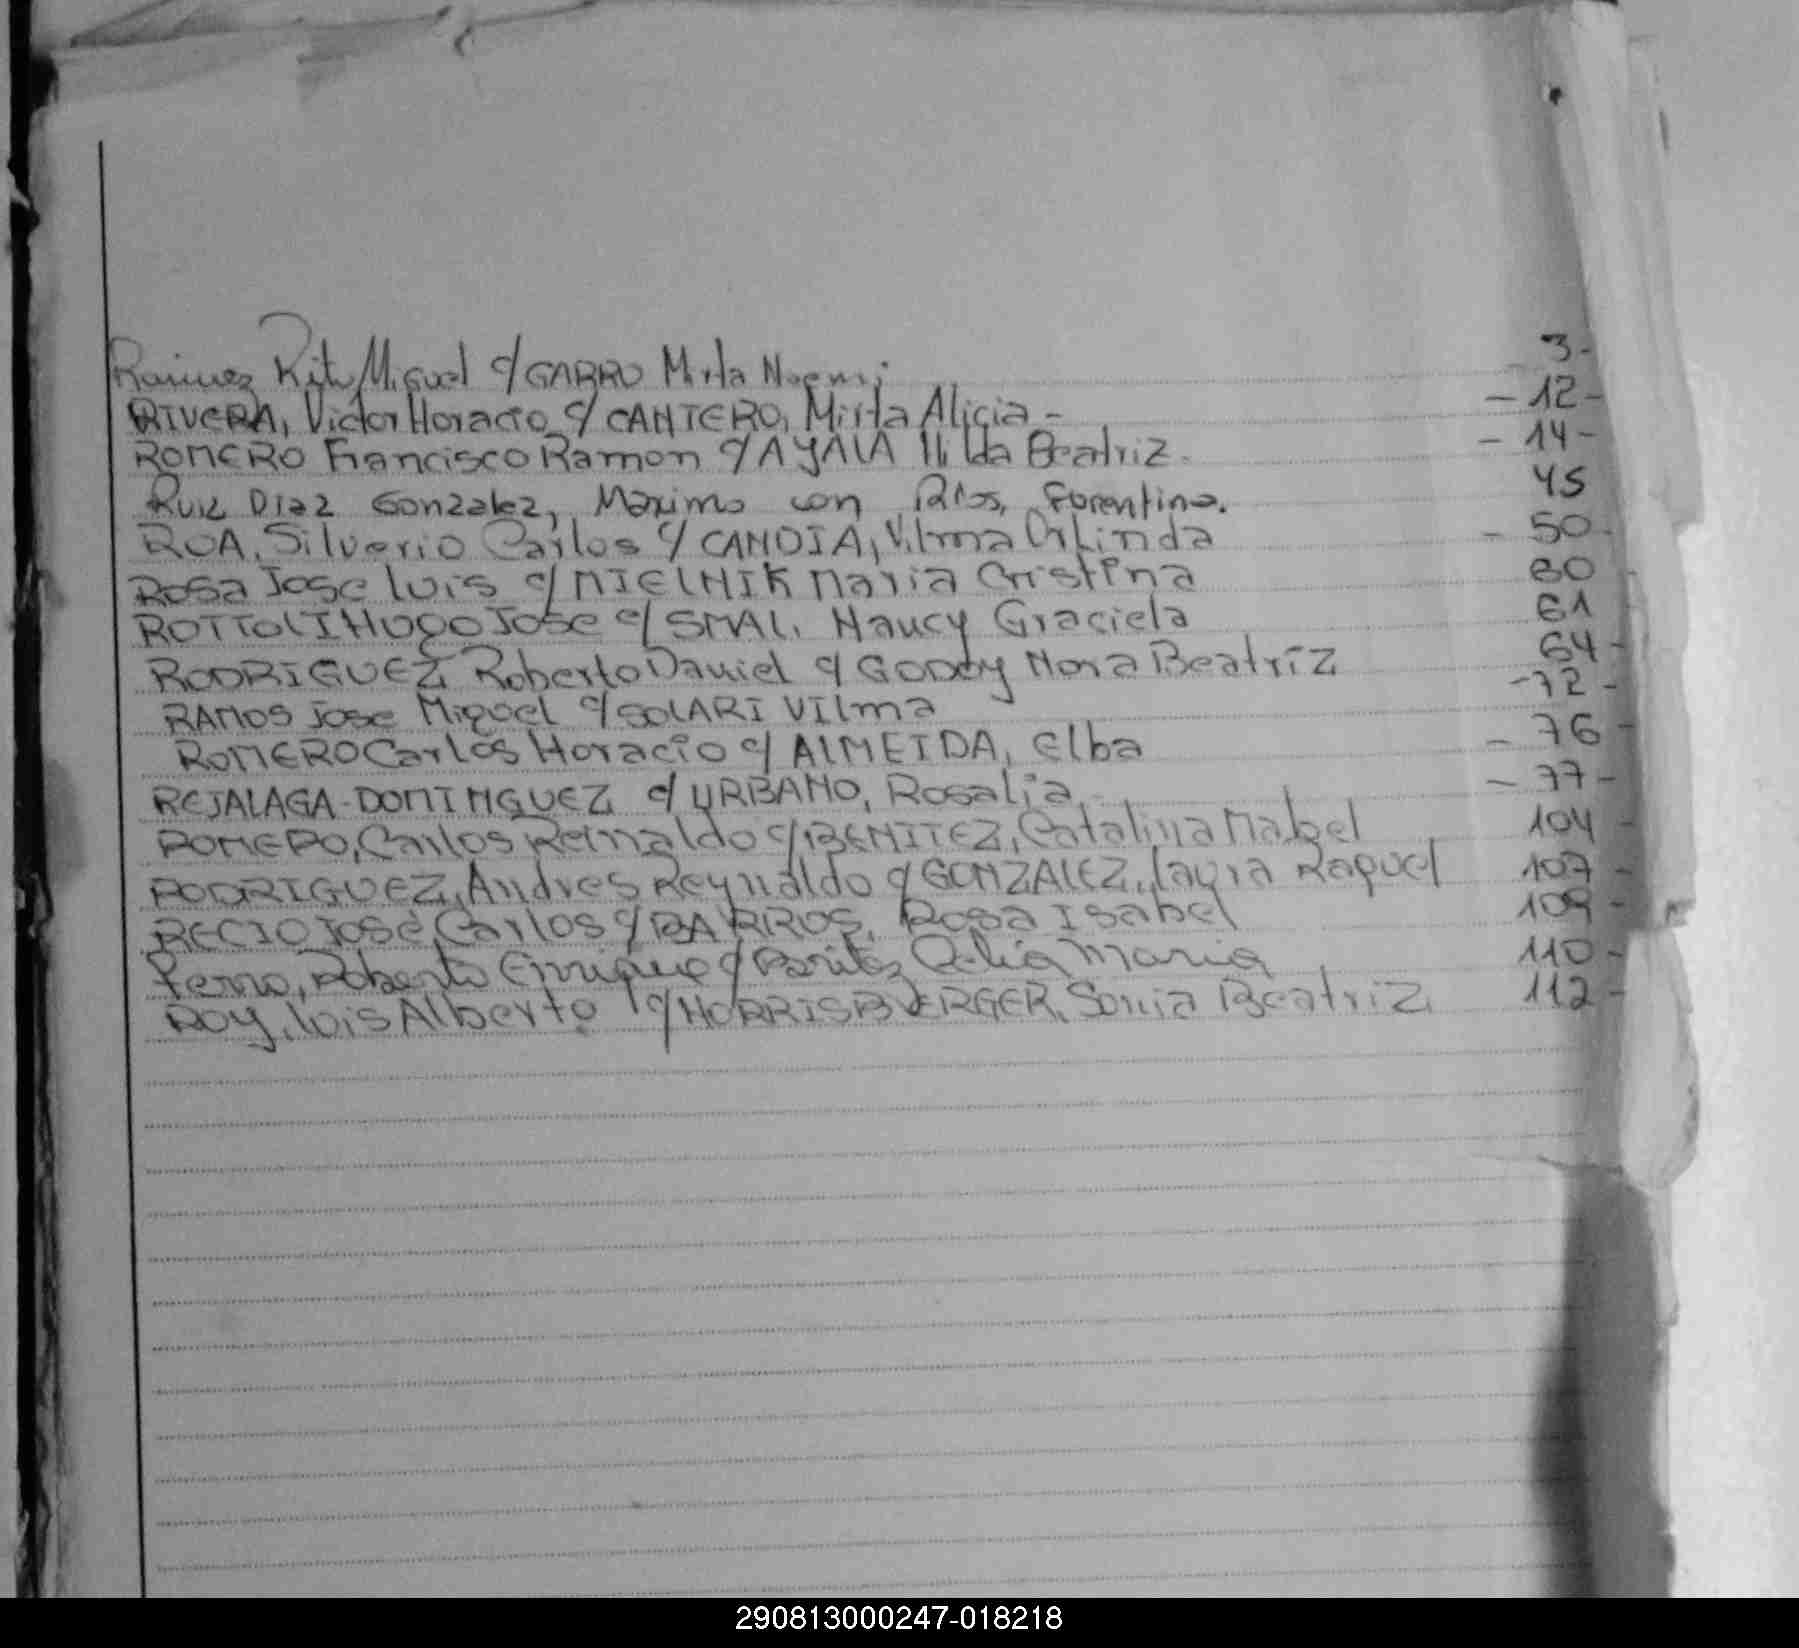 Ramirez Rito Miguel c/ GARRO Mirta Noemi 3-
RIVERA, Victor Horacio c/ CANTERO, Mirta Alicia - - 12 -
ROMERO Francisco Ramon c/ AYALA Ilda Beatriz. - 14 -
Ruiz Diaz Gonzalez, Maximo con Rios, Forentina. 45
ROA, Silverio Carlos c/ CANDIA, Vilma Orlinda - 50 -
ROSA Jose Luis c/ MIELNIK Maria Cristina 60
ROTTOLI HUGO JOSE c/ SMAL, Nancy Graciela 61
RODRIGUEZ Roberto Daniel c/ GODOY Nora Beatriz 64 -
RAMOS Jose Miguel c/ SOLARI Vilma - 72 -
ROMERO Carlos Horacio c/ ALMEIDA, Elba - 76 -
REJALAGA-DOMINGUEZ c/ URBANO, Rosalia, - 77 -
ROMERO, Carlos Reinaldo c/ BENITEZ, Catalina Mabel 104 -
RODRIGUEZ, Andres Reynaldo c/ GONZALEZ, Laura Raquel 107 -
RECIO José Carlos c/ BARROS, Rosa Isabel 109 -
Roberto Enrique c/ Benitez Celia Maria 110 -
ROY, Luis Alberto c/ HORRISBERGER, Sonia Beatriz 112 -
290813000247-018218